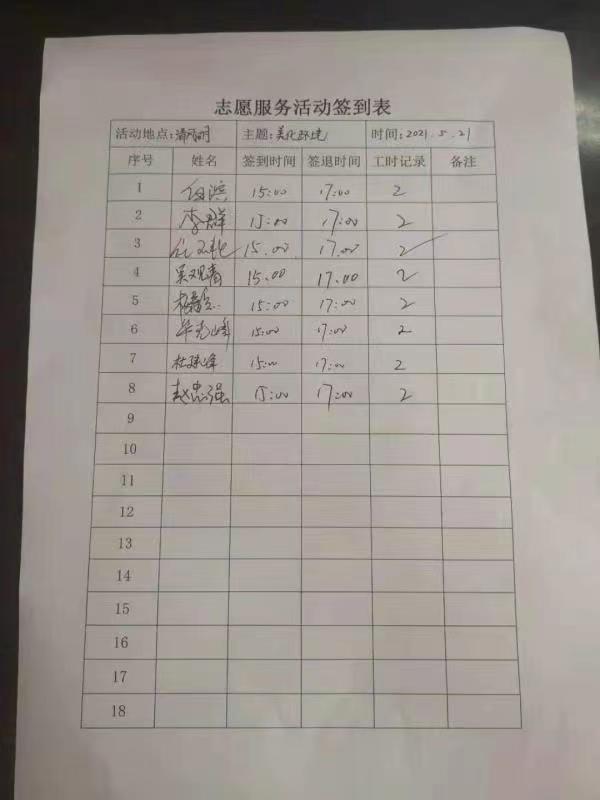 志愿服务活动签到表
活动地点: 主题:美化环境 时间:2021.5.21
序号 姓名 签到时间 签退时间 工时记录 备注
1 15:00 17:00 2
2 李群 15:00 17:00 2
3 15.00 17.00 2
4 吴观青 15.00 17.00 2
5 15:00 17:00 2
6 15:00 17:00 2
7 杜建峰 15:00 17:00 2
8 赵忠强 15:00 17:00 2
9
10
11
12
13
14
15
16
17
18